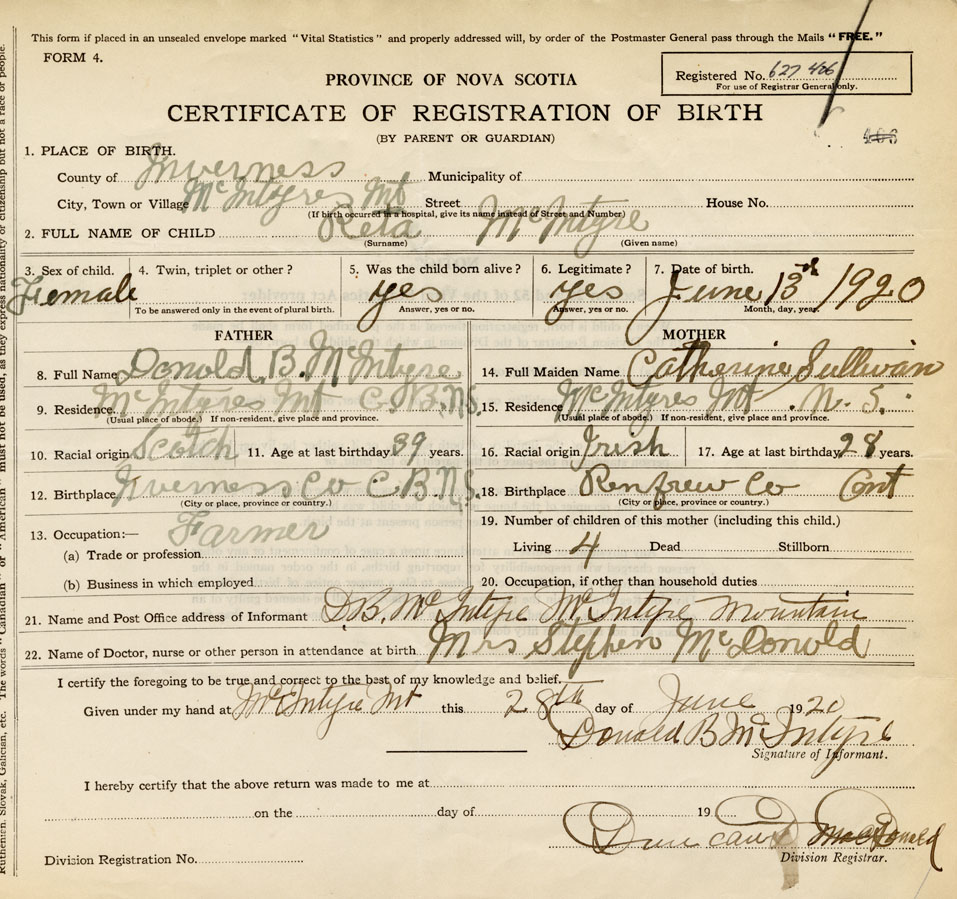 This form if placed in an unsealed envelope marked "Vital Statistics" and properly addressed will, by order of the Postmaster General pass through the Mails "FREE."
FORM 4.
PROVINCE OF NOVA SCOTIA
Registered No. 627 406
For use of Registrar General only.
CERTIFICATE OF REGISTRATION OF BIRTH
(BY PARENT OR GUARDIAN)
1. PLACE OF BIRTH.
County of Inverness Municipality of
City, Town or Village McIntyres Mt Street House No.
(If birth occurred in a hospital, give its name instead of Street and Number)
2. FULL NAME OF CHILD Reta McIntyre
(Surname) (Given name)
3. Sex of child. 4. Twin, triplet or other? 5. Was the child born alive? 6. Legitimate? 7. Date of birth.
Female yes yes June 13th 1920
To be answered only in the event of plural birth. Answer, yes or no. Answer, yes or no. Month, day, year.
FATHER MOTHER
8. Full Name Donald B. McIntyre 14. Full Maiden Name Catherine Sullivan
9. Residence. McIntyres Mt C.B.N.S. 15. Residence McIntyres Mt. N.S.
(Usual place of abode.) If non-resident, give place and province. (Usual place of abode.) If non-resident, give place and province.
10. Racial origin Scotch 11. Age at last birthday 39 years. 16. Racial origin Irish 17. Age at last birthday 28 years.
12. Birthplace Inverness Co C.B.N.S. 18. Birthplace Renfrew Co Ont
(City or place, province or country.) (City or place, province or country.)
13. Occupation:— Farmer 19. Number of children of this mother (including this child.)
(a) Trade or profession Living 4 Dead Stillborn
(b) Business in which employed 20. Occupation, if other than household duties
21. Name and Post Office address of Informant D.B. McIntyre McIntyre Mountain
22. Name of Doctor, nurse or other person in attendance at birth Mrs Stephen McDonald
I certify the foregoing to be true and correct to the best of my knowledge and belief.
Given under my hand at McIntyre Mt this 28th day of June 1920
Donald B McIntyre
Signature of Informant.
I hereby certify that the above return was made to me at
on the day of 19
Duncan MacDonald
Division Registration No. Division Registrar.
Ruthenien, Slovak, Galician, etc. The words "Canadian" or "American" must not be used, as they express nationality or citizenship but not a race or people.